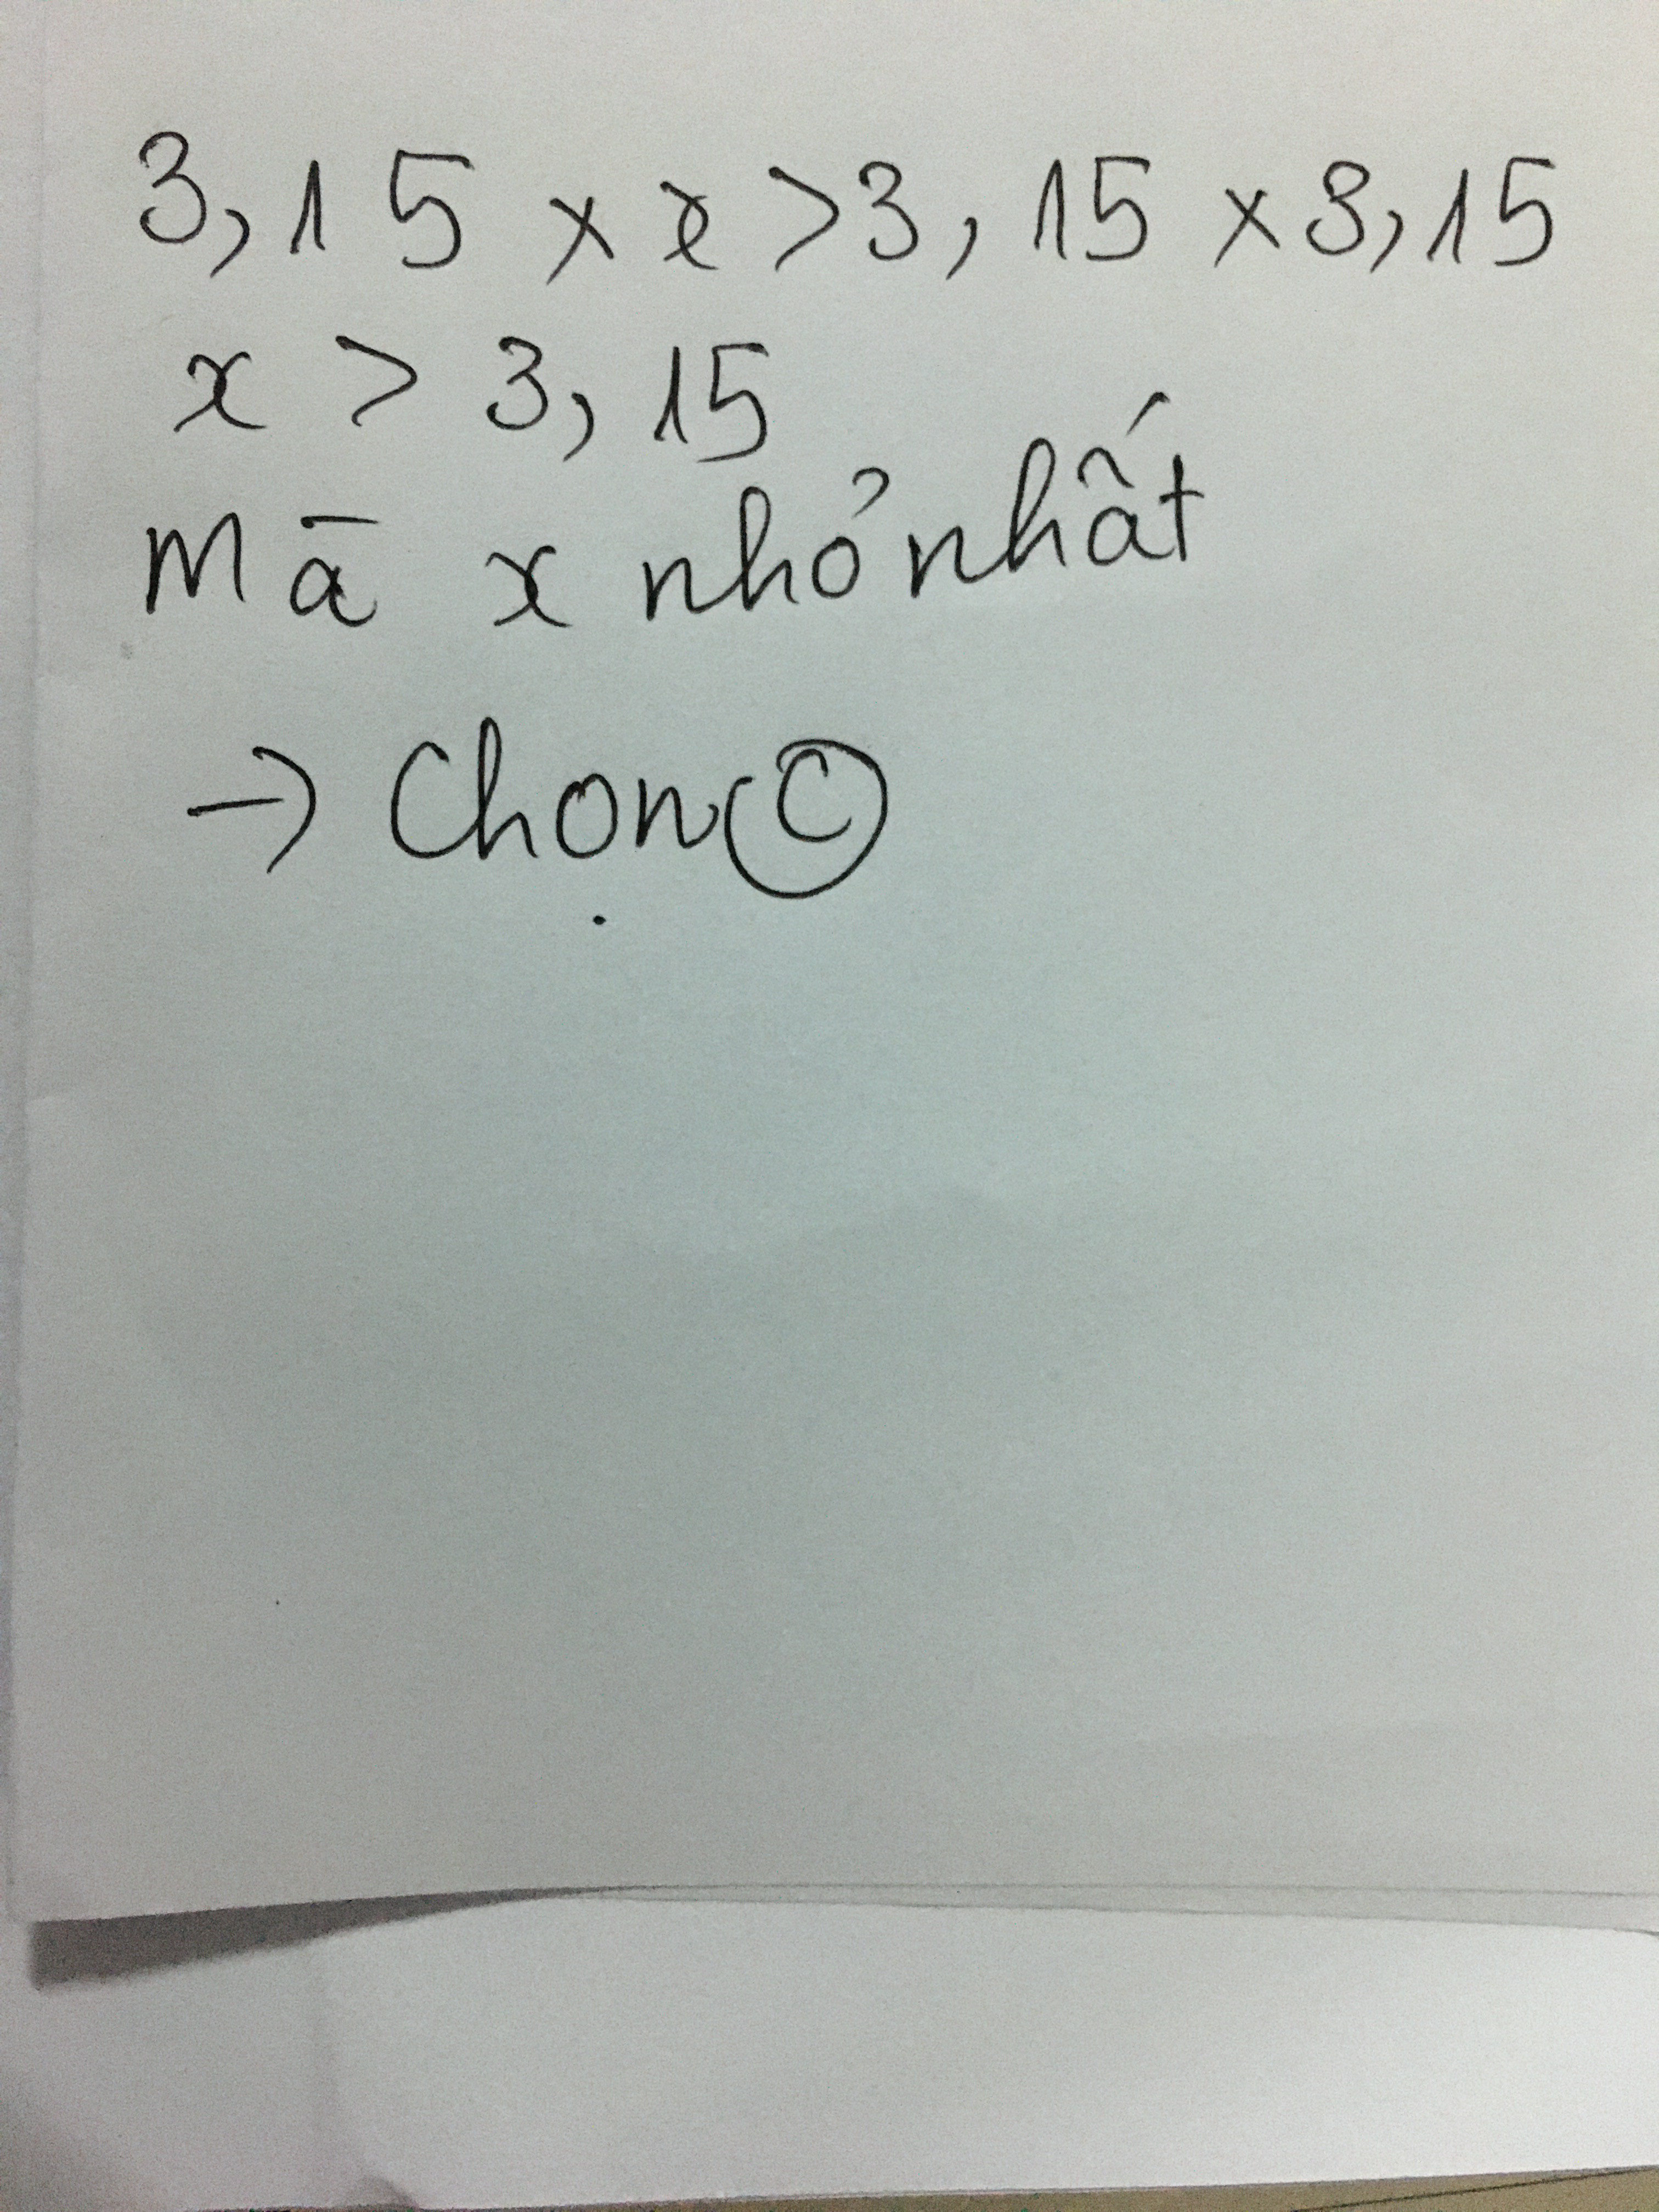 3,15 × x > 3,15 × 3,15
x > 3,15
Mà x nhỏ nhất
→ Chọn C